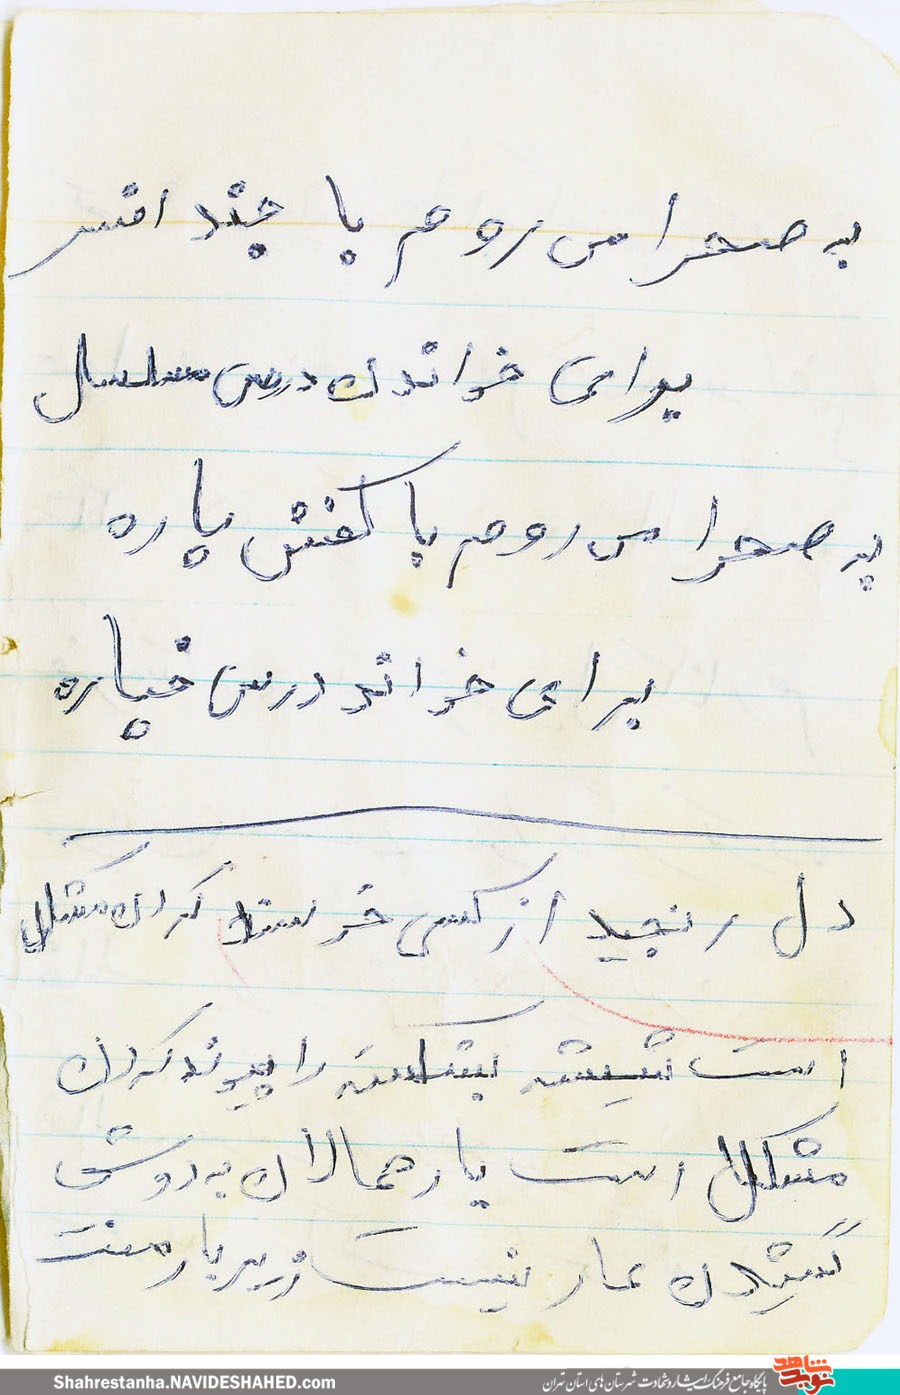 به صحرا می روم با چند افسر
برای خواندن درس مسلسل
به صحرا می روم با کفش پاره
برای خواند درس خپاره
دل رنجید از کسی خرسند کردن مشکل
است شیشه بشکسته را پیوند کردن
مشکل است بار همالان به دوش
کشیدن عار نیست زیر بار منت
Shahrestanha.NAVIDESHAHED.com
نوید شاهد
پایگاه جامع فرهنگ ایثار و شهادت شهرستان های استان تهران